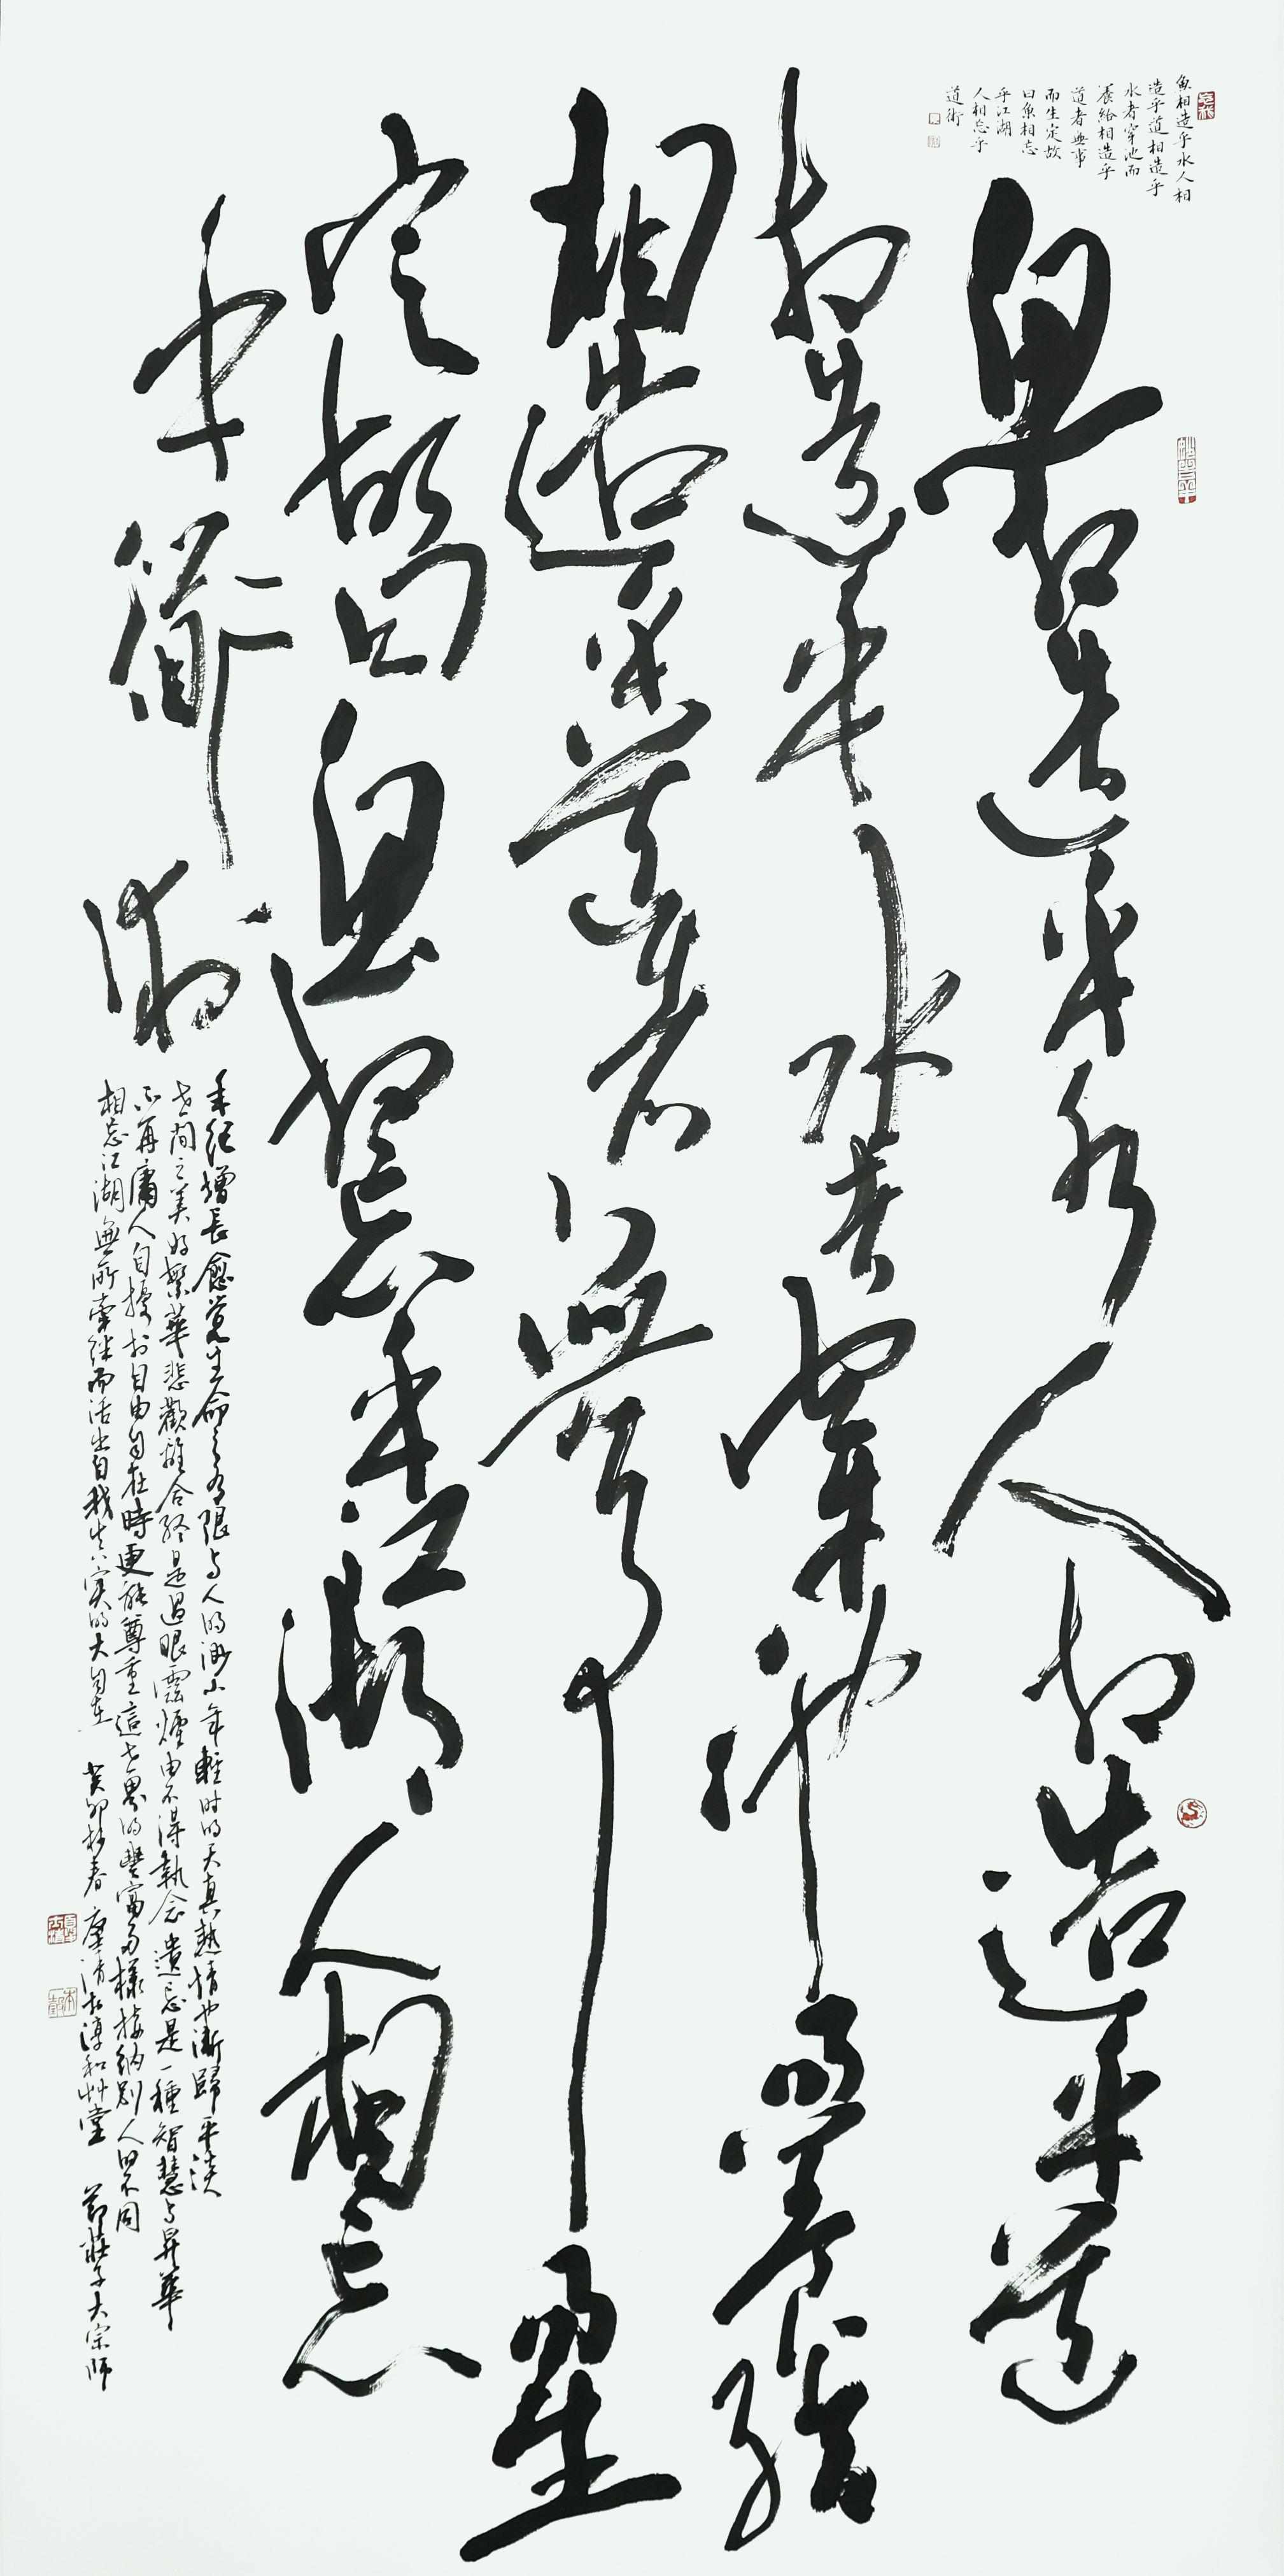 魚相造乎水人相
造乎道相造乎
水者穿池而
養給相造乎
道者無事
而生定故
曰魚相忘
乎江湖
人相忘乎
道術
魚相造乎水人相造乎道
相造乎水者穿池而養給
相造乎道者無事而生
定故曰魚相忘乎江湖人相忘
乎衜術
年紀增長愈覺生命之有限与人的渺小年輕时的天真熱情也漸歸平淡
世间之美好繁華悲歡離合終是過眼雲煙由不得執念遺忘是一種智慧与昇華
不再庸人自擾於自由自在時更能尊重這世界的豐富多樣接納別人不同
相忘江湖無所牽絆而活出自我真實的大自在 癸卯杪春 清水淳和艸堂 節莊子大宗師